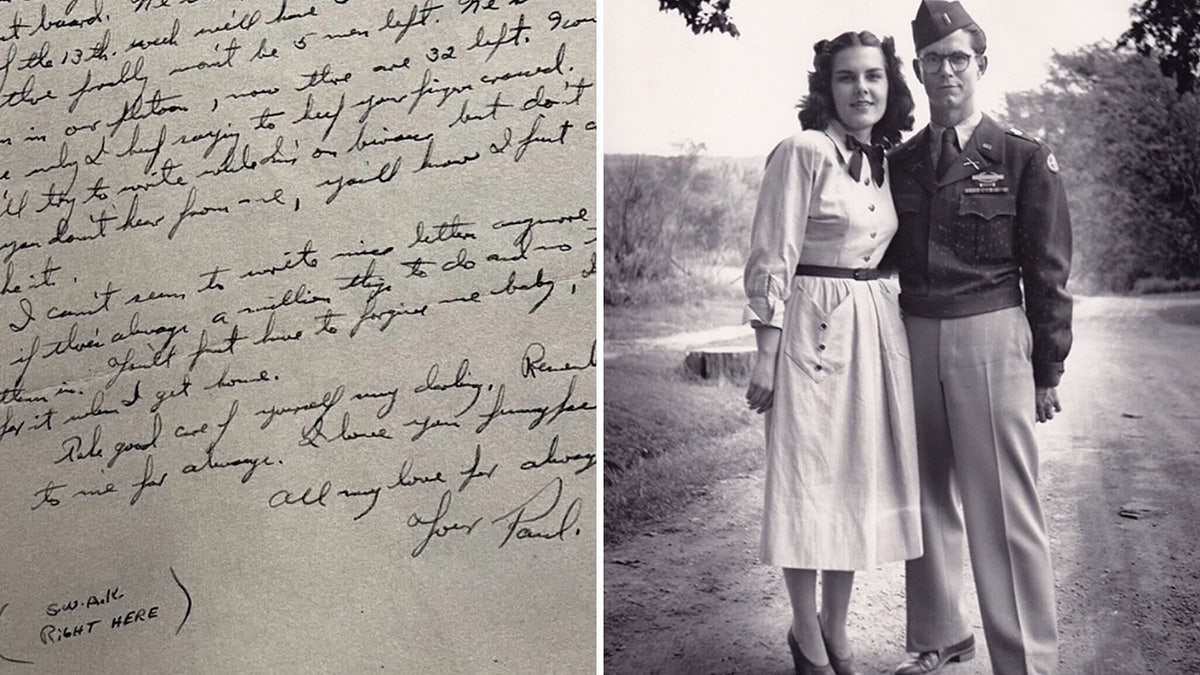 t board. He s
of the 13th. week we'll have
there finally won't be 5 men left.
in our platoon, now there are 32 left.
why I keep saying to keep your fingers crossed.
'll try to write while he's on bivouac but don't
you don't hear from me, you'll know I just
he it.
I can't seem to write nice letters anymore
if there's always a million things to do and no
them in. You'll just have to forgive me baby, I
for it when I get home.
Take good care of yourself my darling. Rememb
to me for always. I love you funnyface
All my love for alway
Your Paul.
(S.W.A.K.
RIGHT HERE)